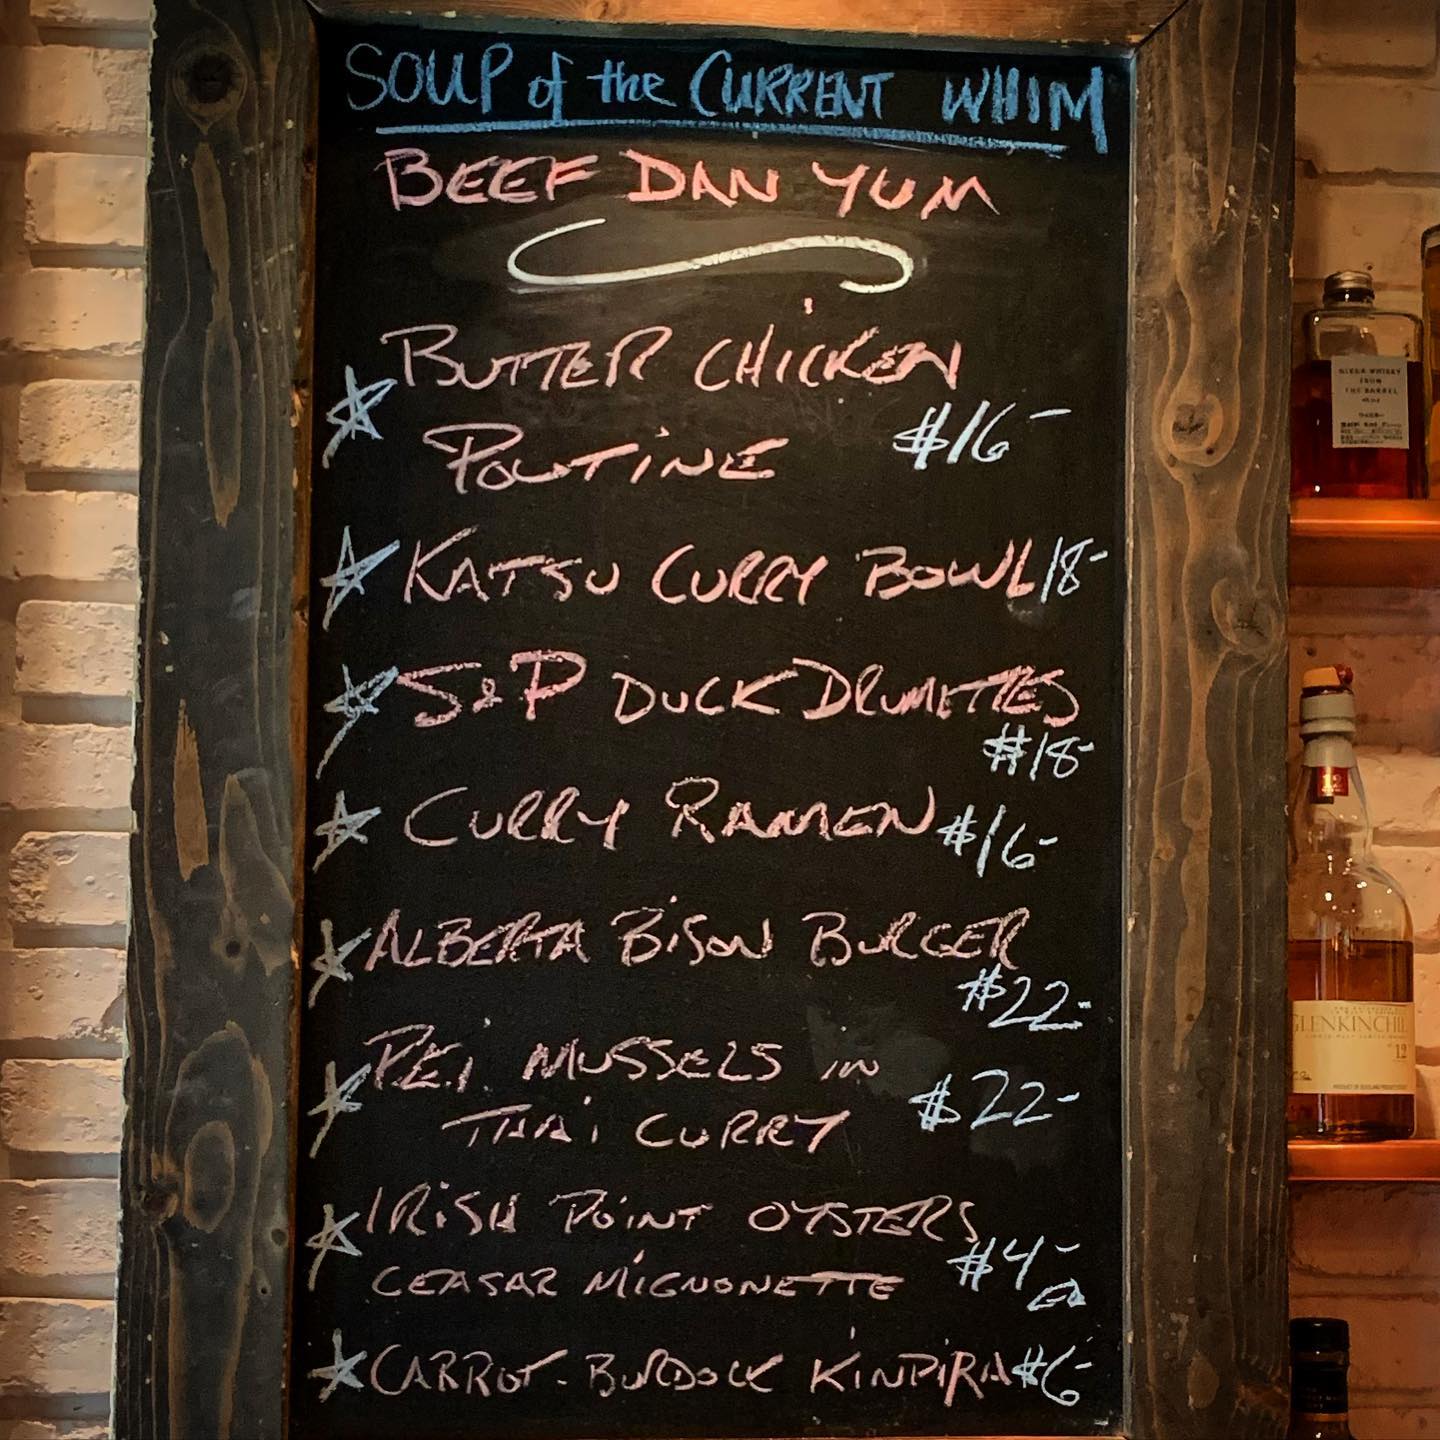 SOUP of the CURRENT WHIM
BEEF DAN YUM
BUTTER CHICKEN
POUTINE $16-
KATSU CURRY BOWL 18-
S&P DUCK DRUMETTES
$18-
CURRY RAMEN $16-
ALBERTA BISON BURGER
$22-
P.E.I. MUSSELS IN
THAI CURRY $22-
IRISH POINT OYSTERS
CEASAR MIGNONETTE $4- EA
CARROT-BURDOCK KINPIRA $6-
NIKKA WHISKY
FROM
THE BARREL
GLENKINCHI
12